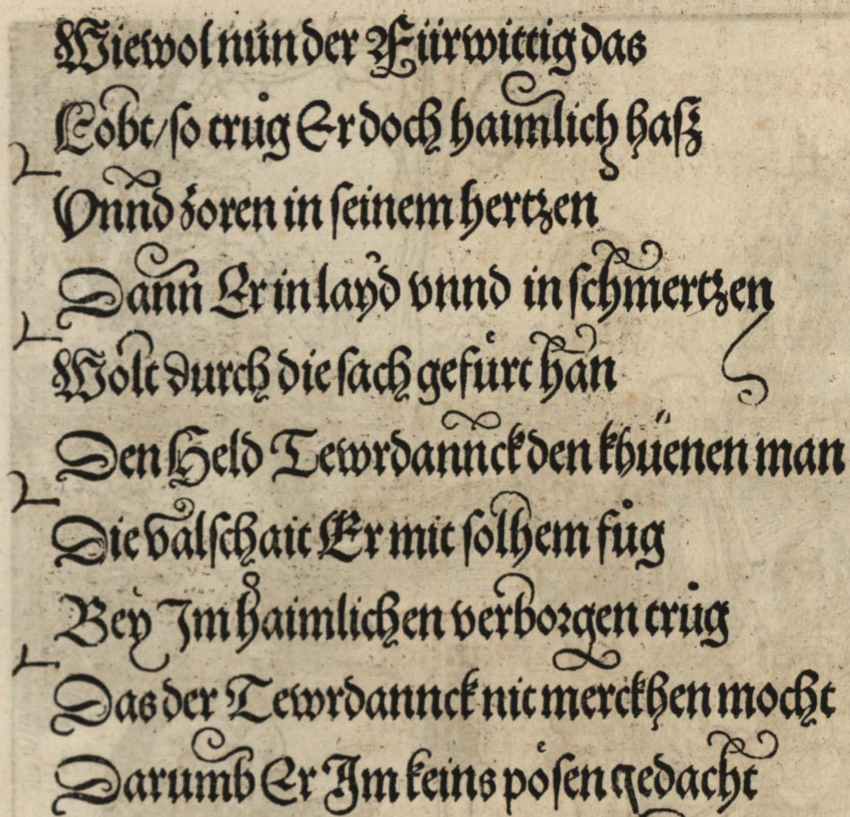 Wiewol nun der Fürwittig das
Lobt/ so trůg Er doch haimlich hasz
Vnnd zoren in seinem hertzen
Dann Er in layd vnnd in schmertzen
Wolt durch die sach gefürt han
Den Held Tewrdannck den khüenen man
Die valschait Er mit solhem fůg
Bey Im haimlichen verborgen trůg
Das der Tewrdannck nit merckhen mocht
Darumb Er Im keins pösen gedacht